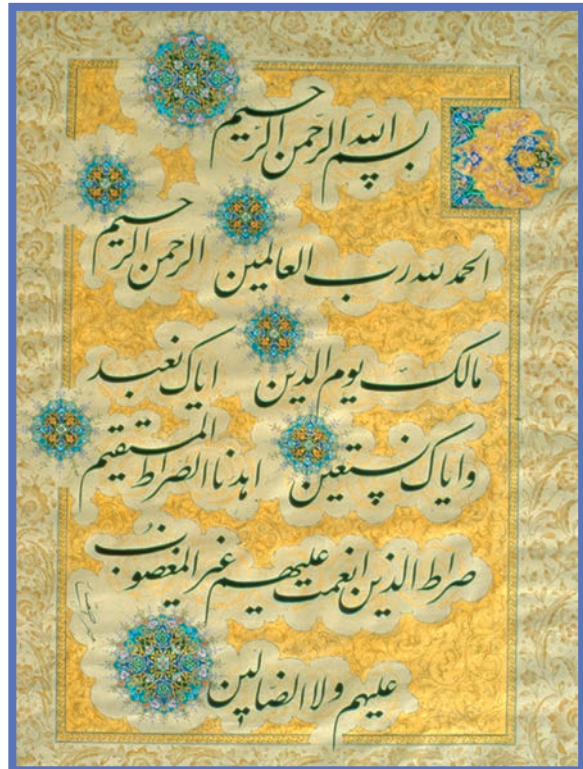 بسم الله الرحمن الرحيم
الحمد لله رب العالمين الرحمن الرحيم
مالک يوم الدين اياک نعبد
واياک نستعين اهدنا الصراط المستقيم
صراط الذين انعمت عليهم غير المغضوب
عليهم ولا الضالين